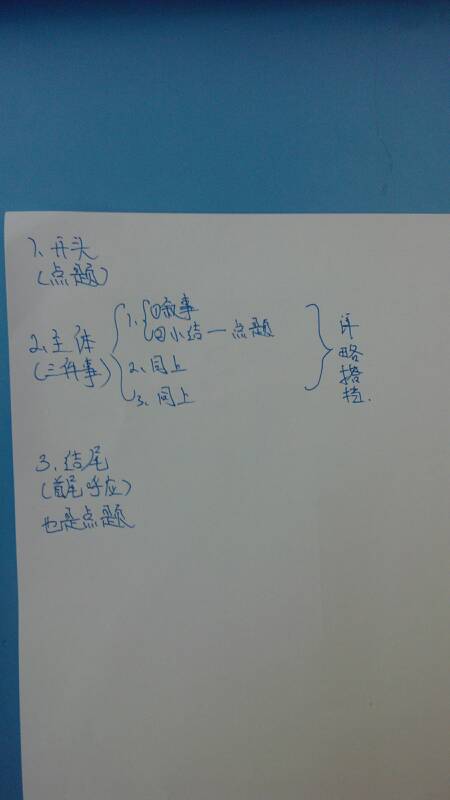 1、开头
(点题)
2、主体
(三件事)
1、①叙事
②小结一点题
2、同上
3、同上
详
略
搭
档.
3、结尾
(首尾呼应)
也是点题